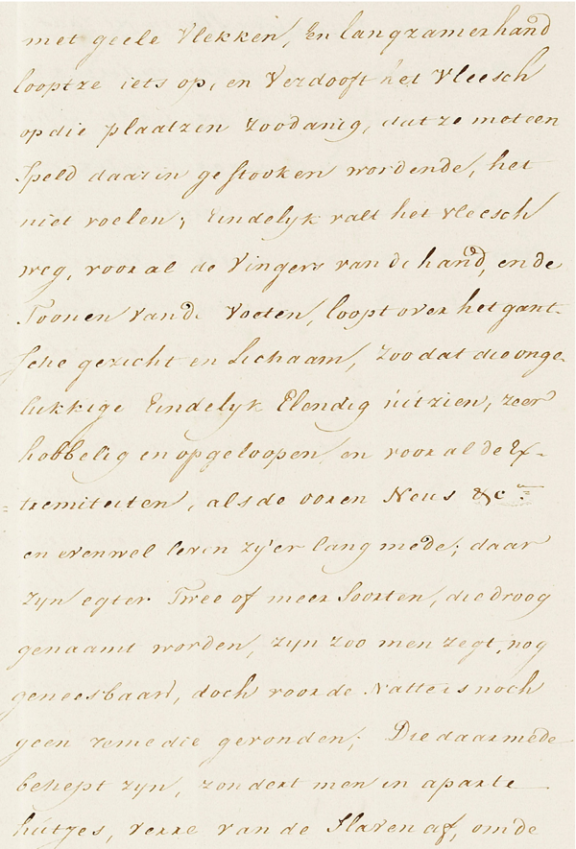 met geele Vlekken, En langzamerhand
looptze iets op, en Verdooft het Vleesch
op die plaatzen Zoodanig, dat ze met een
Speld daar in gestooken wordende, het
niet voelen; Eindelyk valt het vleesch
weg, voor al de Vingers van de hand, en de
Toonen Vand. Voeten, loopt over het gant-
sche gezicht en Lichaam, Zoo dat die onge-
lukkige Eindelyk Elendig uitzien, zeer
hobbelig en opgeloopen en voor al de Ex-
tremiteiten, als de ooren Neus &c:
en evenwel leven zy er lang mede; daar
zyn egter Twee of meer Soorten, die droog
genaamt worden, zyn zoo men zegt, nog
geneesbaar, doch voor de Natte is noch
geen remedie gevonden; Die daarmede
behept zyn, zondert men in aparte
hutjes, verre van de Slaven af, om de